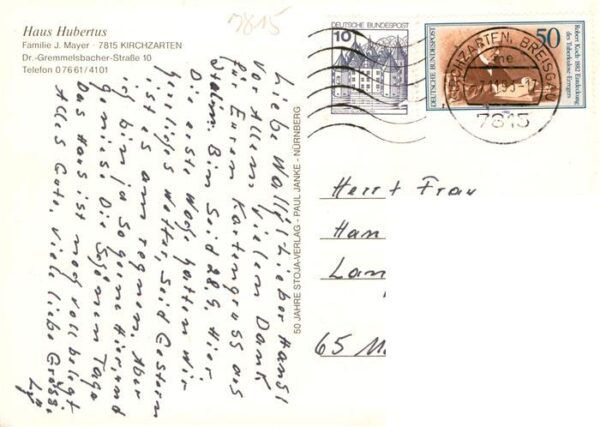 7815
Haus Hubertus
Familie J. Mayer · 7815 KIRCHZARTEN
Dr.-Gremmelsbacher-Straße 10
Telefon 0 76 61 / 41 01
Liebe Wally, Lieber Hansl
Vor Allem Vielen Dank
für Euren Kartengruss aus
Bin Seid 28.9. Hier.
Die erste Woche hatten wir
herrliches Wetter, Seid Gestern
ist es am regnen. Aber
bin ja So gerne Hier, und
genieße Die Schönen Tage
Das Haus ist noch voll belegt.
Alles Gute, Viele liebe Grüsse
50 JAHRE STOJA-VERLAG - PAUL JANKE - NÜRNBERG
DEUTSCHE BUNDESPOST
10
DEUTSCHE BUNDESPOST
50
Robert Koch 1882 Entdeckung
des Tuberkulose-Erregers
KIRCHZARTEN, BREISGAU
me
7815
Herr + Frau
Han
Lan
65 M